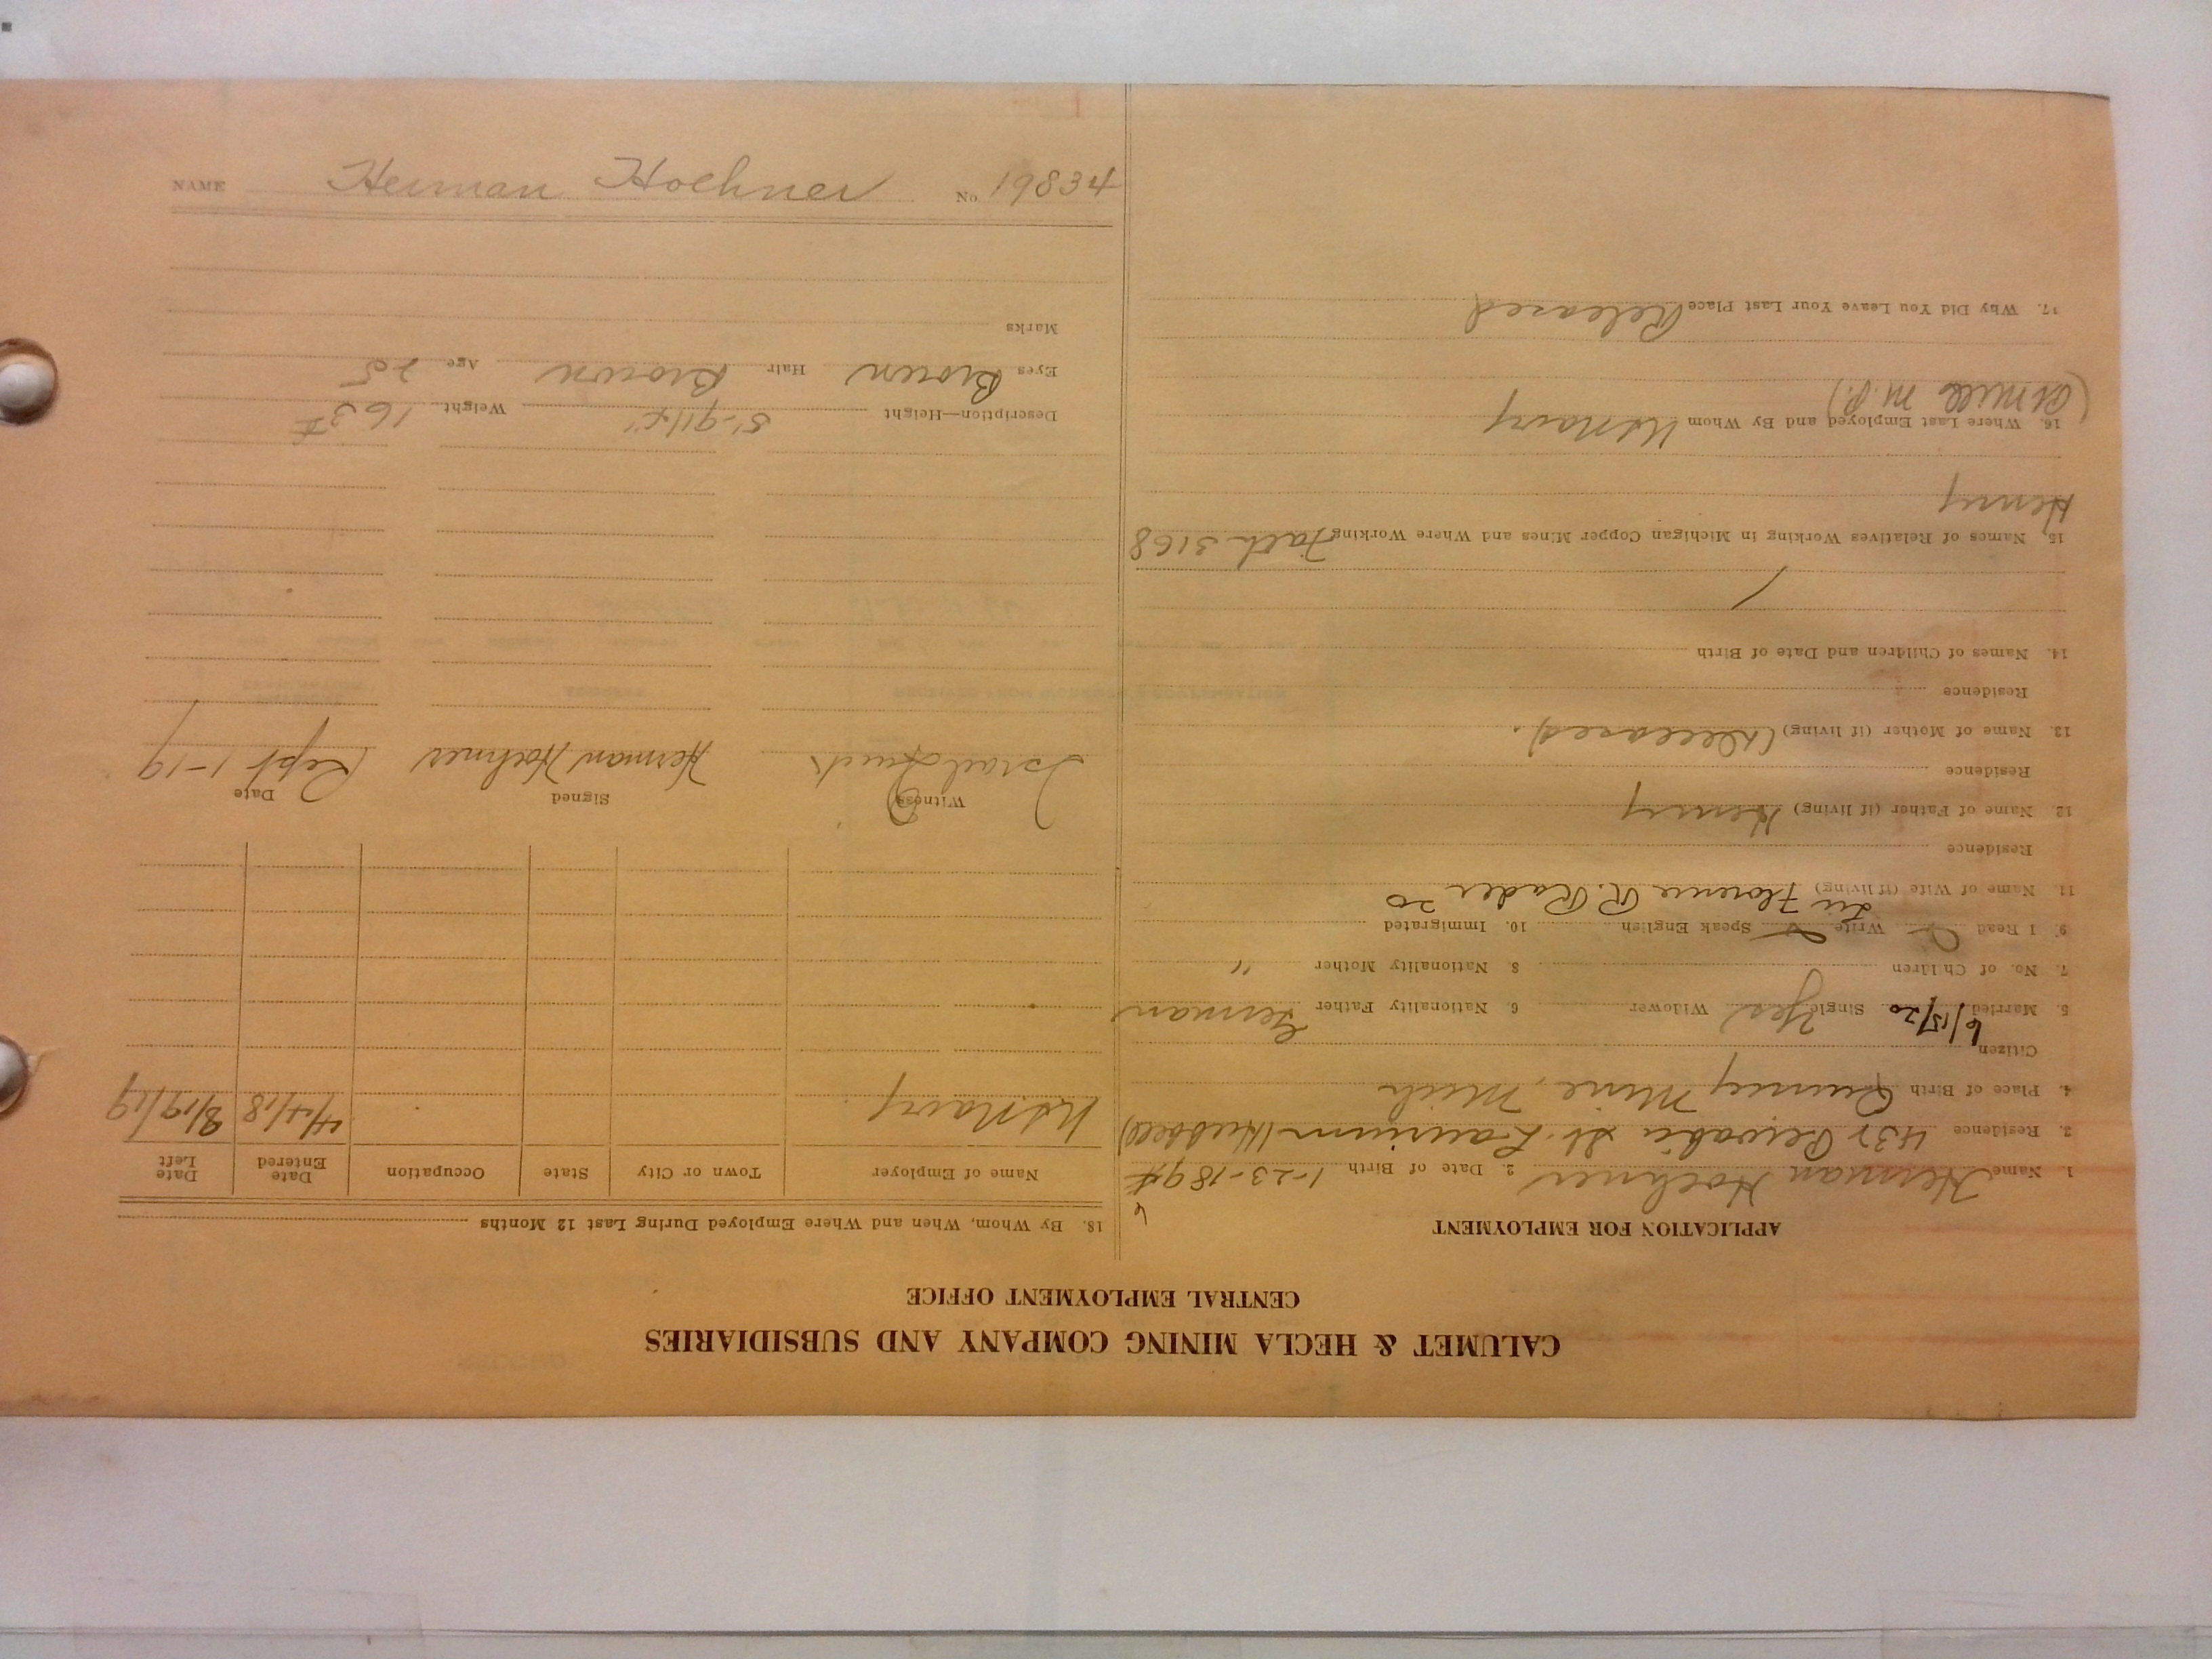 CALUMET & HECLA MINING COMPANY AND SUBSIDIARIES
CENTRAL EMPLOYMENT OFFICE
APPLICATION FOR EMPLOYMENT
1. Name Herman Hoehner 2. Date of Birth 1-23-1894
6
3. Residence 437 Pewabic St. Laurium (Hubbell)
4. Place of Birth Quincy Mine, Mich
Citizen
5. Married 6/15/20 Single Yes Widower 6. Nationality Father German
7. No. of Children 8. Nationality Mother "
9. I Read Write Speak English 10. Immigrated
11. Name of Wife (if living) Florence R. Rader 20
Residence
12. Name of Father (if living) Henry
Residence
13. Name of Mother (if living) (Deceased).
Residence
14. Names of Children and Date of Birth
15. Names of Relatives Working in Michigan Copper Mines and Where Working Fath 3168
Henry
16. Where Last Employed and By Whom US Navy
(At Mill M.P.)
17. Why Did You Leave Your Last Place Released
18. By Whom, When and Where Employed During Last 12 Months
Name of Employer Town or City State Occupation Date Entered Date Left
US Navy 4/24/18 8/19/19
Witness Signed Date
Israel Herman Hoehner Sept 1-19
Description—Height 5'-9 1/2" Weight 163#
Eyes Brown Hair Brown Age 25
Marks
NAME Herman Hoehner No. 19834